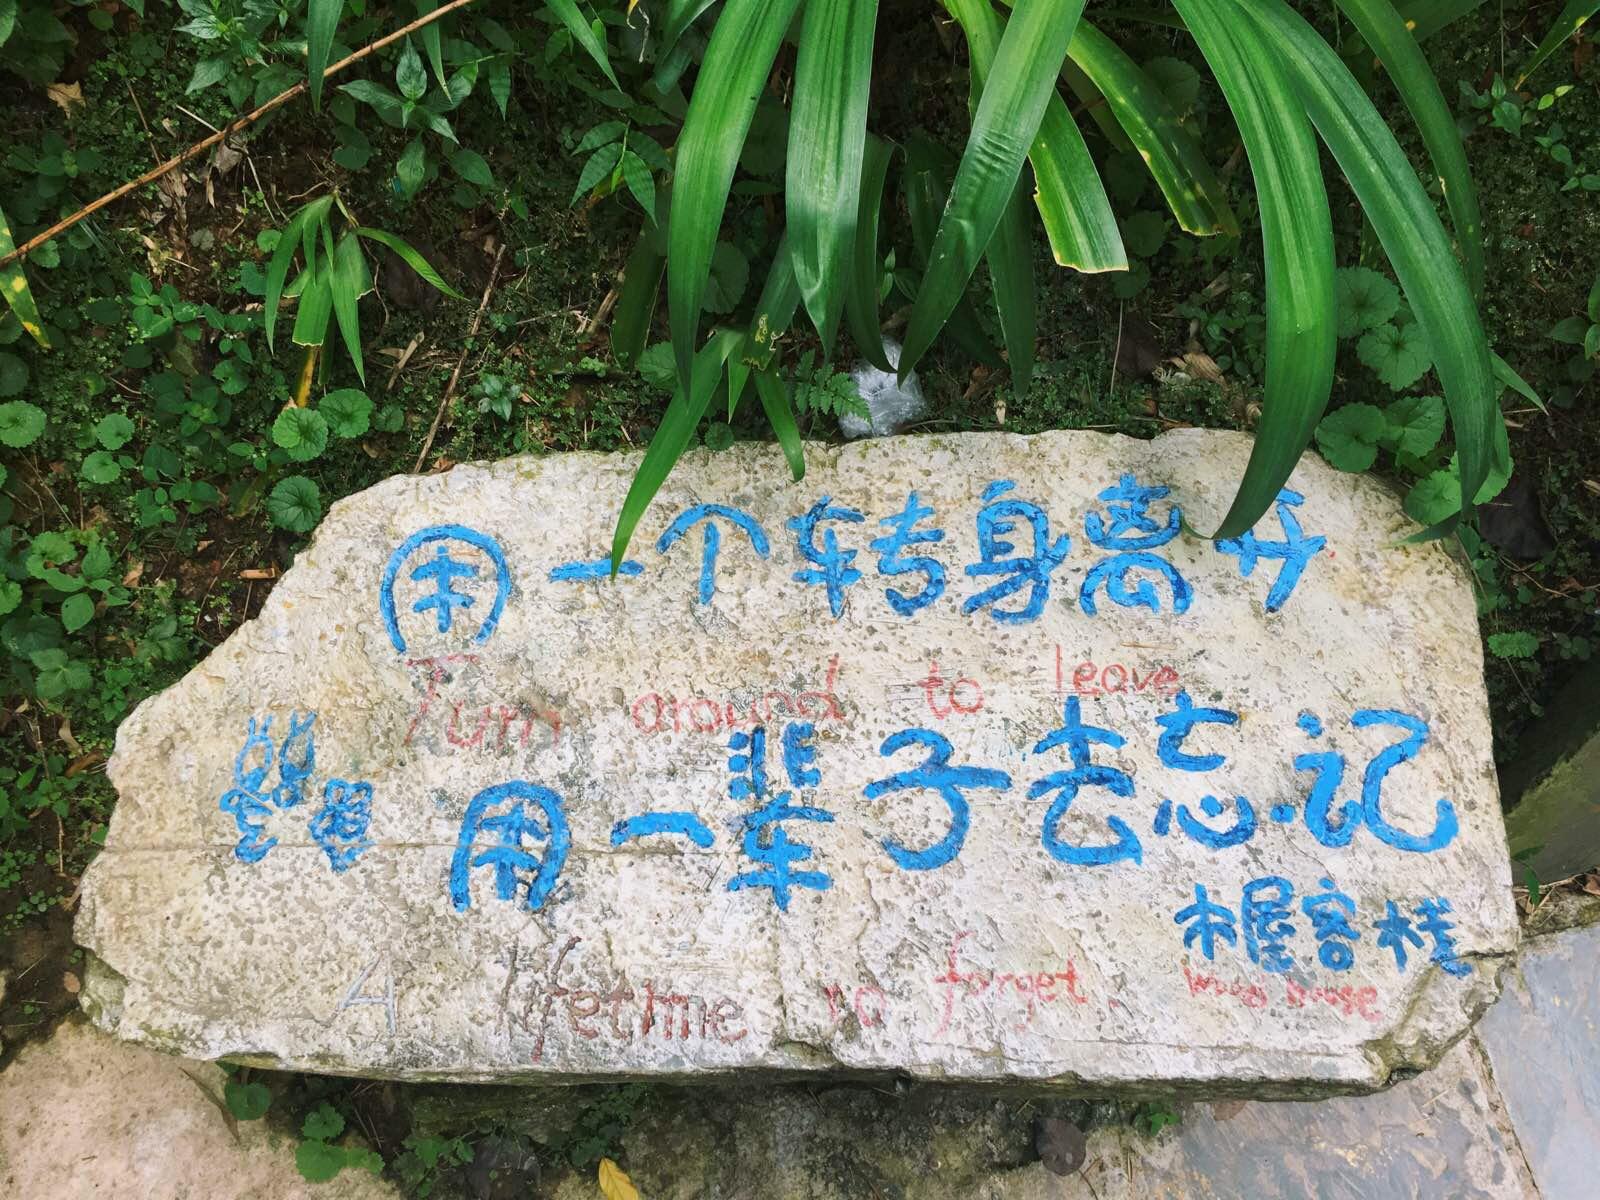 用一个转身离开
Turn around to leave
用一辈子去忘记
A lifetime to forget
木屋客栈